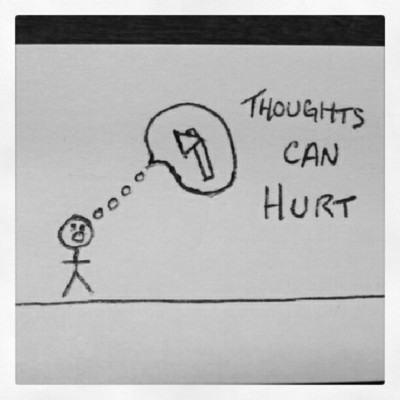 THOUGHTS
CAN
HURT